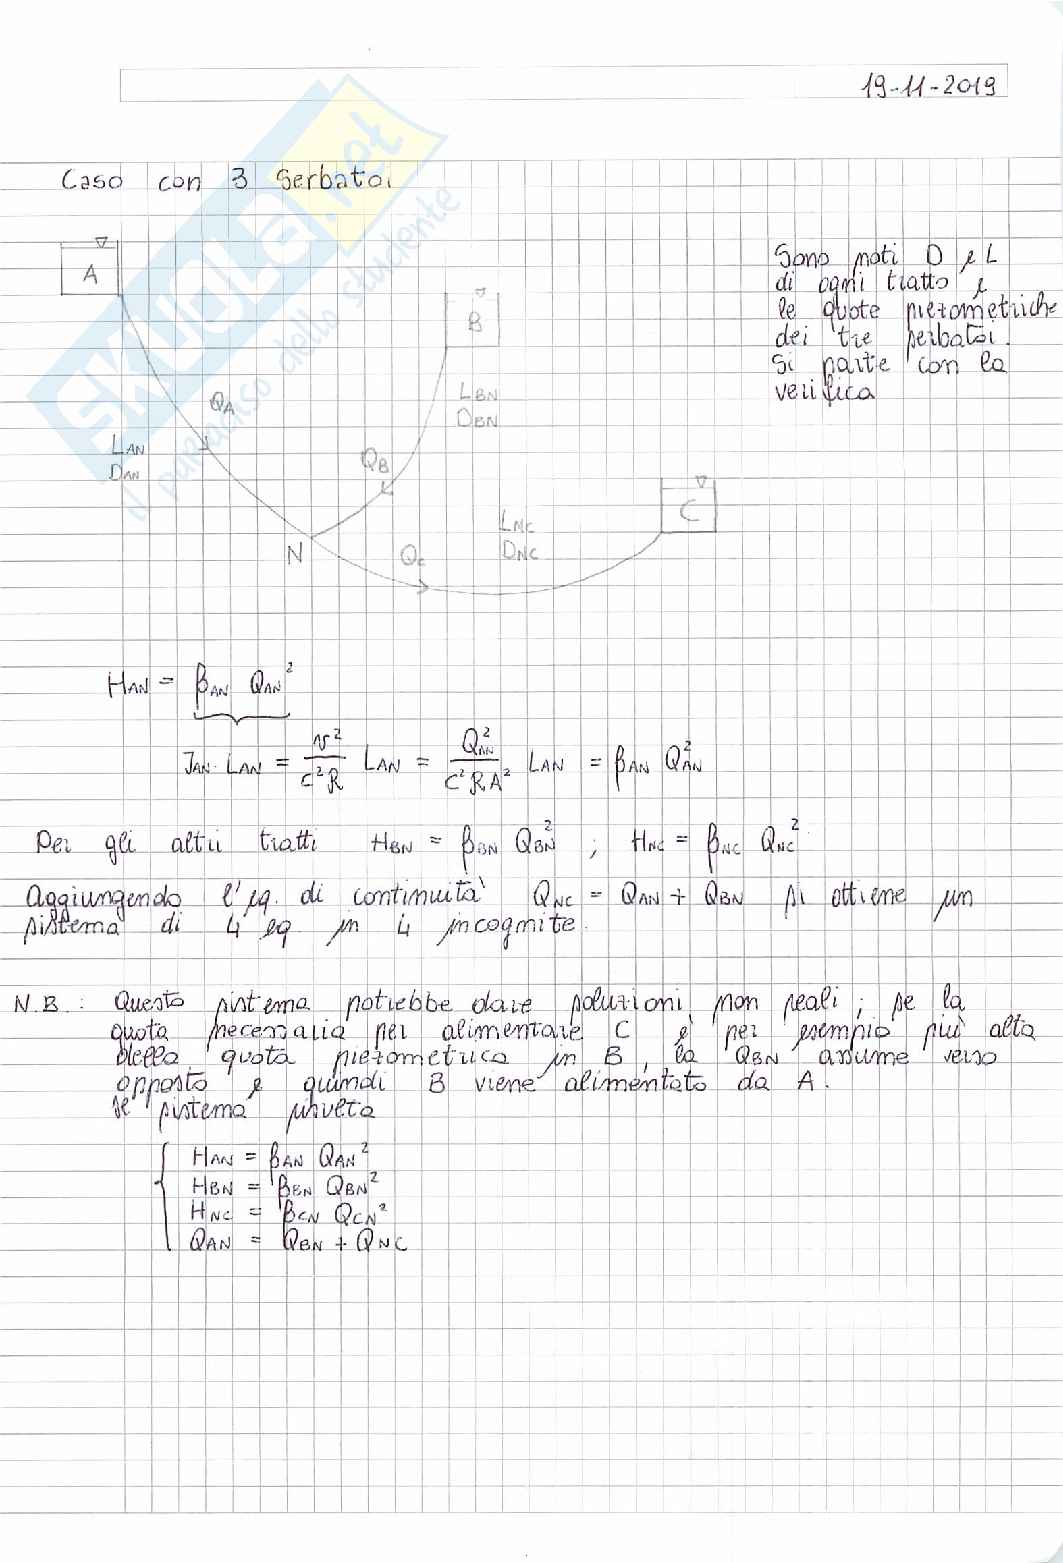 19-11-2019
SKUOLA.net
il paradiso dello studente
Caso con 3 Serbatoi
A
B
Sono noti D e L
di ogni tratto e
le quote piezometriche
dei tre serbatoi.
Si parte con la
verifica
QA
LBN
DBN
LAN
DAN
QB
C
LNC
DNC
N
QC
HAN = βAN QAN²
JAN · LAN = v²/C²R LAN = QAN²/C²RA² LAN = βAN QAN²
Per gli altri tratti HBN = βBN QBN² ; HNC = βNC QNC²
Aggiungendo l'eq. di continuità QNC = QAN + QBN si ottiene un
sistema di 4 eq in 4 incognite.
N.B.: Questo sistema potrebbe dare soluzioni non reali; se la
quota necessaria per alimentare C è per esempio più alta
della quota piezometrica in B, la QBN assume verso
opposto e quindi B viene alimentato da A.
Il sistema risulta
HAN = βAN QAN²
HBN = βBN QBN²
HNC = βCN QCN²
QAN = QBN + QNC